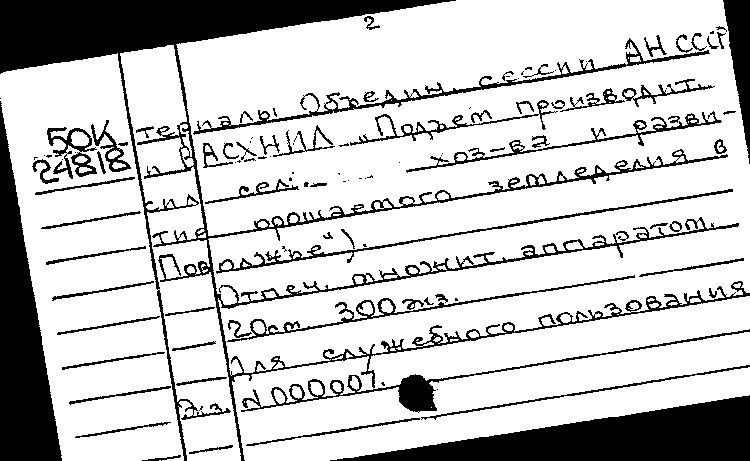 2
териалы Объедин. сессии АН СССР
50К
24818
и ВАСХНИЛ „Подъем производит.
сил сел. хоз-ва и разви-
тие орошаемого земледелия в
Поволжье").
Отпеч. множит. аппаратом.
20см. 300экз.
Для служебного пользования
Экз. N000007.